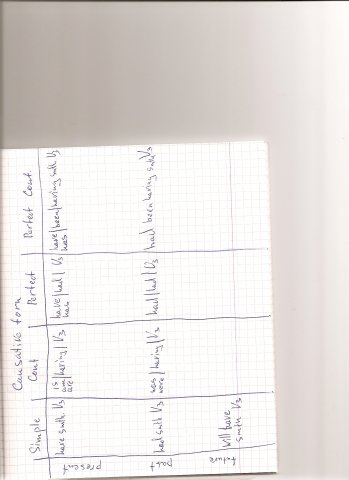 Causative form
Simple Cont Perfect Perfect Cont.
present
have smth V3
is/having/V3
am
are
have/had/V3
has
have/been/having smth V3
has
past
had smth V3
was/having/V3
were
had/had/V3
had been having smth V3
future
Will have
smth V3